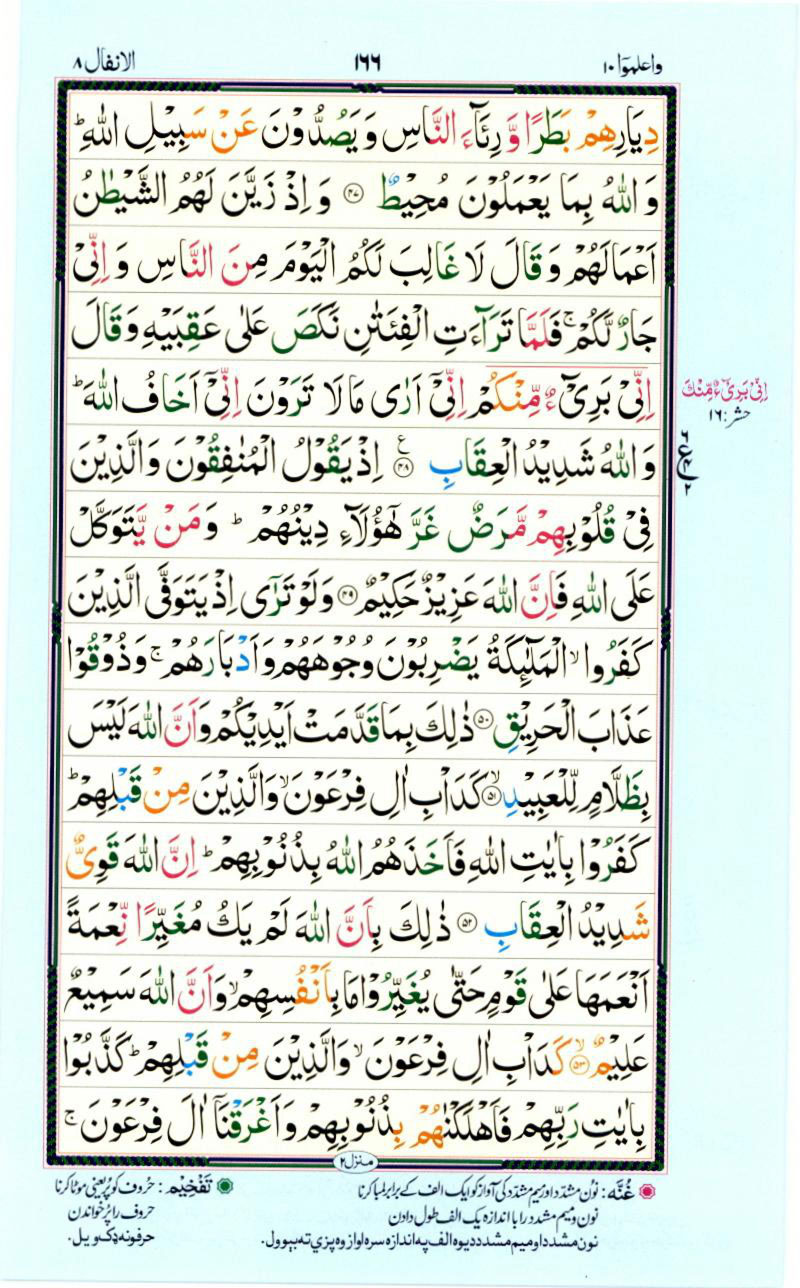 واعلموا ١٠ ١٦٦ الانفال ٨
دِيَارِهِمْ بَطَرًا وَّ رِئَآءَ النَّاسِ وَ يَصُدُّوْنَ عَنْ سَبِيْلِ اللّٰهِ ؕ
وَ اللّٰهُ بِمَا يَعْمَلُوْنَ مُحِيْطٌ ﴿۴۷﴾ وَ اِذْ زَيَّنَ لَهُمُ الشَّيْطٰنُ
اَعْمَالَهُمْ وَ قَالَ لَا غَالِبَ لَكُمُ الْيَوْمَ مِنَ النَّاسِ وَ اِنِّيْ
جَارٌ لَّكُمْ ۚ فَلَمَّا تَرَآءَتِ الْفِئَتٰنِ نَكَصَ عَلٰى عَقِبَيْهِ وَ قَالَ
اِنِّيْ بَرِيْٓءٌ مِّنْكُمْ اِنِّيْۤ اَرٰى مَا لَا تَرَوْنَ اِنِّيْۤ اَخَافُ اللّٰهَ ؕ
اِنِّيْ بَرِيْٓءٌ مِّنْكَ
حشر: ١٦
وَ اللّٰهُ شَدِيْدُ الْعِقَابِ ﴿۴۸﴾ ع اِذْ يَقُوْلُ الْمُنٰفِقُوْنَ وَ الَّذِيْنَ
فِيْ قُلُوْبِهِمْ مَّرَضٌ غَرَّ هٰۤؤُلَآءِ دِيْنُهُمْ ؕ وَ مَنْ يَّتَوَكَّلْ
عَلَى اللّٰهِ فَاِنَّ اللّٰهَ عَزِيْزٌ حَكِيْمٌ ﴿۴۹﴾ وَ لَوْ تَرٰۤى اِذْ يَتَوَفَّى الَّذِيْنَ
كَفَرُوا ۙ الْمَلٰٓئِكَةُ يَضْرِبُوْنَ وُجُوْهَهُمْ وَ اَدْبَارَهُمْ ۚ وَ ذُوْقُوْا
عَذَابَ الْحَرِيْقِ ﴿۵۰﴾ ذٰلِكَ بِمَا قَدَّمَتْ اَيْدِيْكُمْ وَ اَنَّ اللّٰهَ لَيْسَ
بِظَلَّامٍ لِّلْعَبِيْدِ ﴿ۙ۵۱﴾ كَدَاْبِ اٰلِ فِرْعَوْنَ ۙ وَ الَّذِيْنَ مِنْ قَبْلِهِمْ ؕ
كَفَرُوْا بِاٰيٰتِ اللّٰهِ فَاَخَذَهُمُ اللّٰهُ بِذُنُوْبِهِمْ ؕ اِنَّ اللّٰهَ قَوِيٌّ
شَدِيْدُ الْعِقَابِ ﴿۵۲﴾ ذٰلِكَ بِاَنَّ اللّٰهَ لَمْ يَكُ مُغَيِّرًا نِّعْمَةً
اَنْعَمَهَا عَلٰى قَوْمٍ حَتّٰى يُغَيِّرُوْا مَا بِاَنْفُسِهِمْ ۙ وَ اَنَّ اللّٰهَ سَمِيْعٌ
عَلِيْمٌ ﴿ۙ۵۳﴾ كَدَاْبِ اٰلِ فِرْعَوْنَ ۙ وَ الَّذِيْنَ مِنْ قَبْلِهِمْ ؕ كَذَّبُوْا
بِاٰيٰتِ رَبِّهِمْ فَاَهْلَكْنٰهُمْ بِذُنُوْبِهِمْ وَ اَغْرَقْنَاۤ اٰلَ فِرْعَوْنَ ۚ
منزل ۲
غُنَّه: نون مشدد اور میم مشدد کی آواز کو ایک الف کے برابر لمبا کرنا تَفْخِيْم: حروف کو پُر یعنی موٹا کرنا
نون ومیم مشدد را با اندازه یک الف طول دادن حروف را پُر خواندن
نون مشدد او میم مشدد د یوه الف په اندازه سره اواز وه پزي ته بیوول. حرفونه ډک ویل.